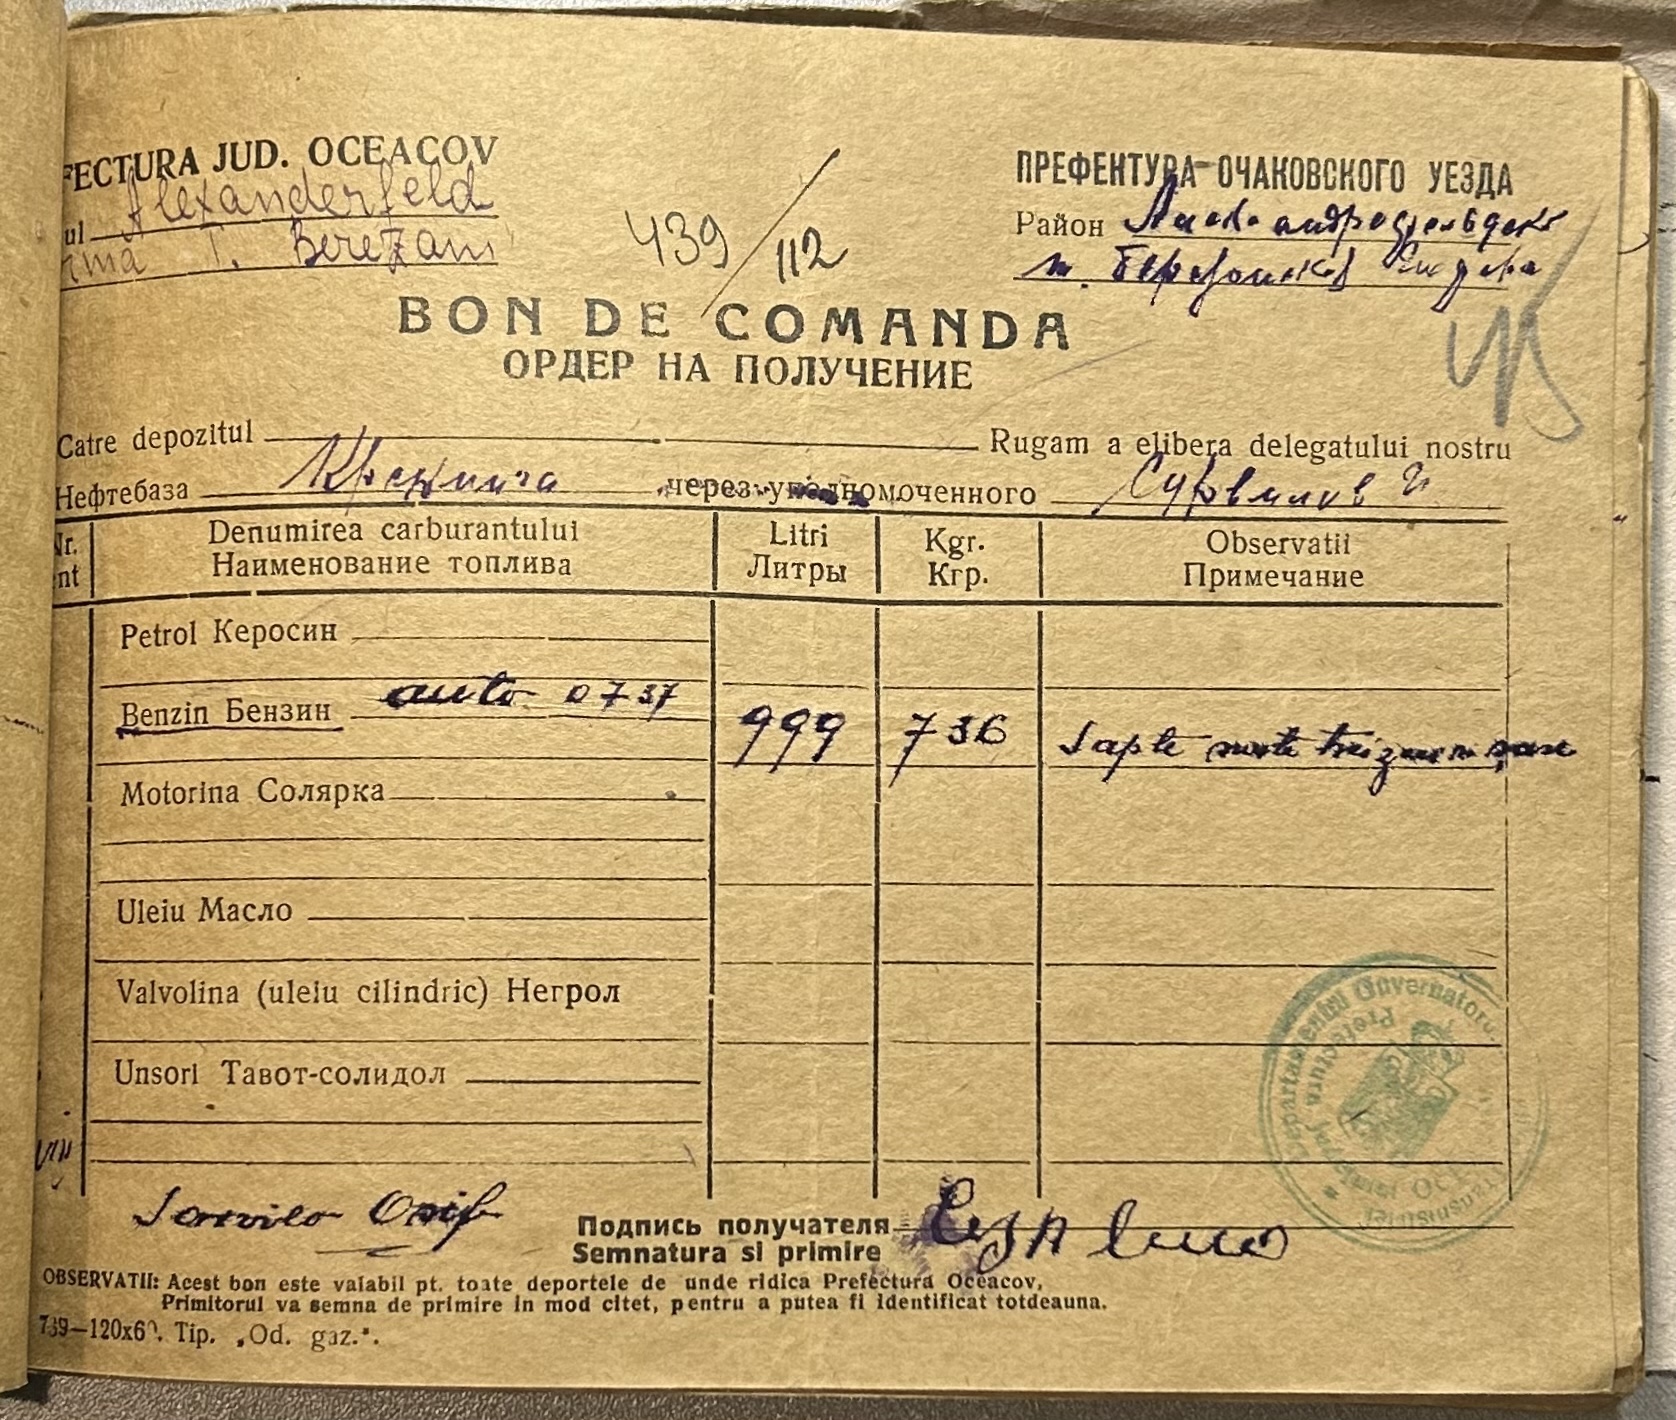 FECTURA JUD. OCEACOV
ul Alexanderfeld
T. Berezani
439/112
ПРЕФЕНТУРА ОЧАКОВСКОГО УЕЗДА
Район
BON DE COMANDA
ОРДЕР НА ПОЛУЧЕНИЕ
Catre depozitul Rugam a elibera delegatului nostru
Нефтебаза через уполномоченного
Nr. Denumirea carburantului Litri Kgr. Observatii
nt Наименование топлива Литры Кгр. Примечание
Petrol Керосин
Benzin Бензин auto 0737 999 736 Sapte sute treizeci sase
Motorina Солярка
Uleiu Масло
Valvolina (uleiu cilindric) Негрол
Unsori Тавот-солидол
Departamentul Guvernatorul Transnistriei
Prefectura Județului
Подпись получателя
Semnatura si primire
OBSERVATII: Acest bon este valabil pt. toate deportele de unde ridica Prefectura Oceacov,
Primitorul va semna de primire in mod citet, pentru a putea fi identificat totdeauna.
739—120x60. Tip. „Od. gaz.".